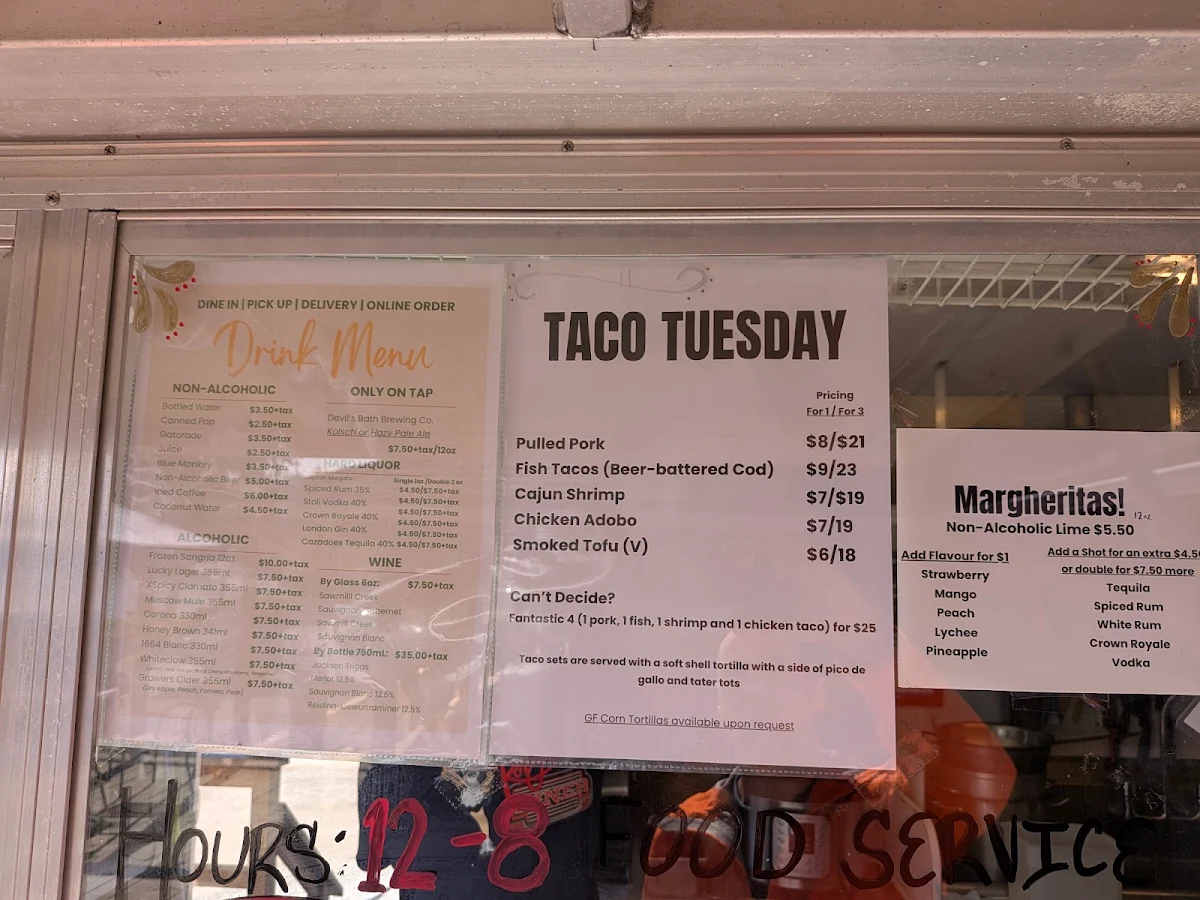 DINE IN | PICK UP | DELIVERY | ONLINE ORDER
Drink Menu
NON-ALCOHOLIC
Bottled Water $3.50+tax
Canned Pop $2.50+tax
Gatorade $3.50+tax
Juice $2.50+tax
Blue Monkey $3.50+tax
Non-Alcoholic Beer $5.00+tax
Iced Coffee $6.00+tax
Coconut Water $4.50+tax
ALCOHOLIC
Frozen Sangria 12oz $10.00+tax
Lucky Lager 355ml $7.50+tax
XSpicy Clamato 355ml $7.50+tax
Moscow Mule 355ml $7.50+tax
Corona 330ml $7.50+tax
Honey Brown 341ml $7.50+tax
1664 Blanc 330ml $7.50+tax
Whiteclaw 355ml $7.50+tax
Growers Cider 355ml $7.50+tax
(Dry Apple, Peach, Pomelo, Pear)
ONLY ON TAP
Devil's Bath Brewing Co.
Kolsch or Hazy Pale Ale
$7.50+tax/12oz
HARD LIQUOR
Captain Morgans Single 1oz /Double 2 oz
Spiced Rum 35% $4.50/$7.50+tax
Stoli Vodka 40% $4.50/$7.50+tax
Crown Royale 40% $4.50/$7.50+tax
London Gin 40% $4.50/$7.50+tax
Cazadoes Tequila 40% $4.50/$7.50+tax
WINE
By Glass 6oz: $7.50+tax
Sawmill Creek
Sauvignon Cabernet
Sawmill Creek
Sauvignon Blanc
By Bottle 750mL: $35.00+tax
Jackson Triggs
Merlot 12.5%
Sauvignon Blanc 12.5%
Reisling-Gewurtraminer 12.5%
TACO TUESDAY
Pricing
For 1 / For 3
Pulled Pork $8/$21
Fish Tacos (Beer-battered Cod) $9/23
Cajun Shrimp $7/$19
Chicken Adobo $7/19
Smoked Tofu (V) $6/18
Can't Decide?
Fantastic 4 (1 pork, 1 fish, 1 shrimp and 1 chicken taco) for $25
Taco sets are served with a soft shell tortilla with a side of pico de
gallo and tater tots
GF Corn Tortillas available upon request
Margheritas! 12oz
Non-Alcoholic Lime $5.50
Add Flavour for $1
Strawberry
Mango
Peach
Lychee
Pineapple
Add a Shot for an extra $4.50
or double for $7.50 more
Tequila
Spiced Rum
White Rum
Crown Royale
Vodka
HOURS: 12-8 FOOD SERVICE